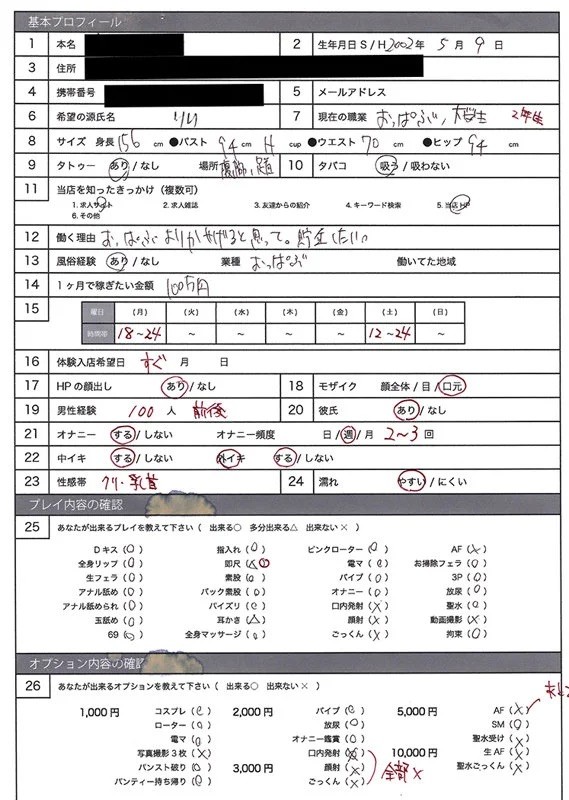 基本プロフィール
1 本名 2 生年月日 S / H 2002年 5月 9日
3 住所
4 携帯番号 5 メールアドレス
6 希望の源氏名 リリ 7 現在の職業 おっぱぶ、大学生 2年生
8 サイズ 身長 156 cm ●バスト 94 cm H cup ●ウエスト 70 cm ●ヒップ 94 cm
9 タトゥー あり / なし 場所 10 タバコ 吸う / 吸わない
11 当店を知ったきっかけ（複数可）
1. 求人サイト 2. 求人雑誌 3. 友達からの紹介 4. キーワード検索 5. 当店HP
6. その他
12 働く理由 おっぱぶよりかせげると思って。貯金したい
13 風俗経験 あり / なし 業種 おっぱぶ 働いてた地域
14 1ヶ月で稼ぎたい金額 100万円
15 曜日 (月) (火) (水) (木) (金) (土) (日)
時間帯 18~24 ～ ～ ～ ～ 12~24 ～
16 体験入店希望日 すぐ 月 日
17 HPの顔出し あり / なし 18 モザイク 顔全体 / 目 / 口元
19 男性経験 100 人 前後 20 彼氏 あり / なし
21 オナニー する / しない オナニー頻度 日 / 週 / 月 2~3 回
22 中イキ する / しない 外イキ する / しない
23 性感帯 クリ・乳首 24 濡れ やすい / にくい
プレイ内容の確認
25 あなたが出来るプレイを教えて下さい（ 出来る○ 多分出来る△ 出来ない× ）
Dキス (○) 指入れ (○) ピンクローター (○) AF (×)
全身リップ (○) 即尺 (△○) 電マ (○) お掃除フェラ (○)
生フェラ (○) 素股 (○) バイブ (○) 3P (○)
アナル舐め (○) バック素股 (○) オナニー (○) 放尿 (○)
アナル舐められ (○) パイズリ (○) 口内発射 (×) 聖水 (○)
玉舐め (○) 耳かき (△) 顔射 (×) 動画撮影 (×)
69 (○) 全身マッサージ (○) ごっくん (×) 拘束 (○)
オプション内容の確認
26 あなたが出来るオプションを教えて下さい（ 出来る○ 出来ない× ）
1,000円 コスプレ (○) 2,000円 バイブ (○) 5,000円 AF (×)
ローター (○) 放尿 (○) SM (○)
電マ (○) オナニー鑑賞 (○) 聖水受け (×)
写真撮影3枚 (×) 口内発射 (×) 10,000円 生AF (×)
パンスト破り (○) 3,000円 顔射 (×) 全部× 聖水ごっくん (×)
パンティー持ち帰り (○) ごっくん (×)